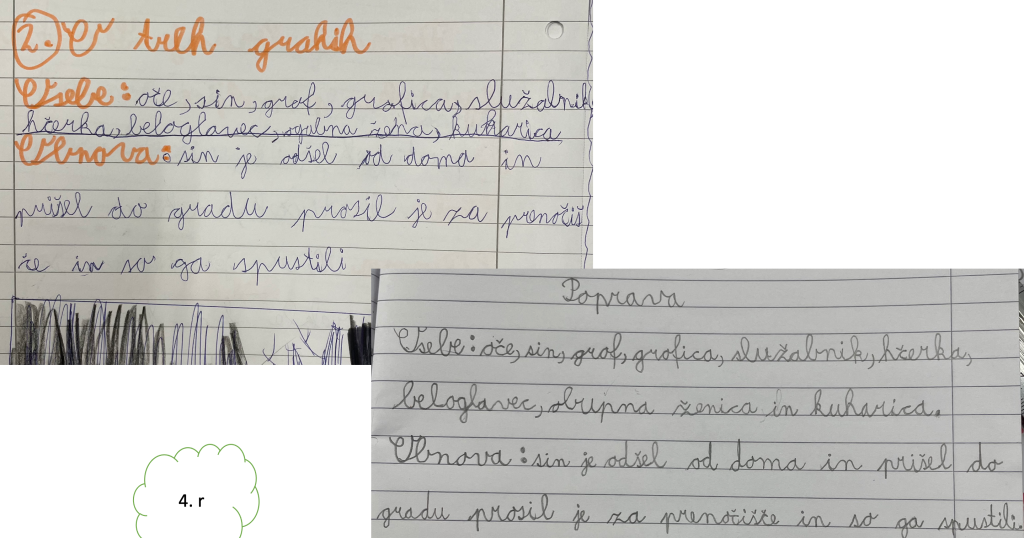 2. O treh grahih
Osebe: oče, sin, grof, grofica, služabnik
hčerka, beloglavec, žena, kuharica,
Obnova: sin je odšel od doma in
prišel do gradu prosil je za prenočiš
če in so ga spustili
Poprava
Osebe: oče, sin, grof, grofica, služabnik, hčerka,
beloglavec, obupna ženica in kuharica.
Obnova: sin je odšel od doma in prišel do
gradu prosil je za prenočišče in so ga spustili.
4. r